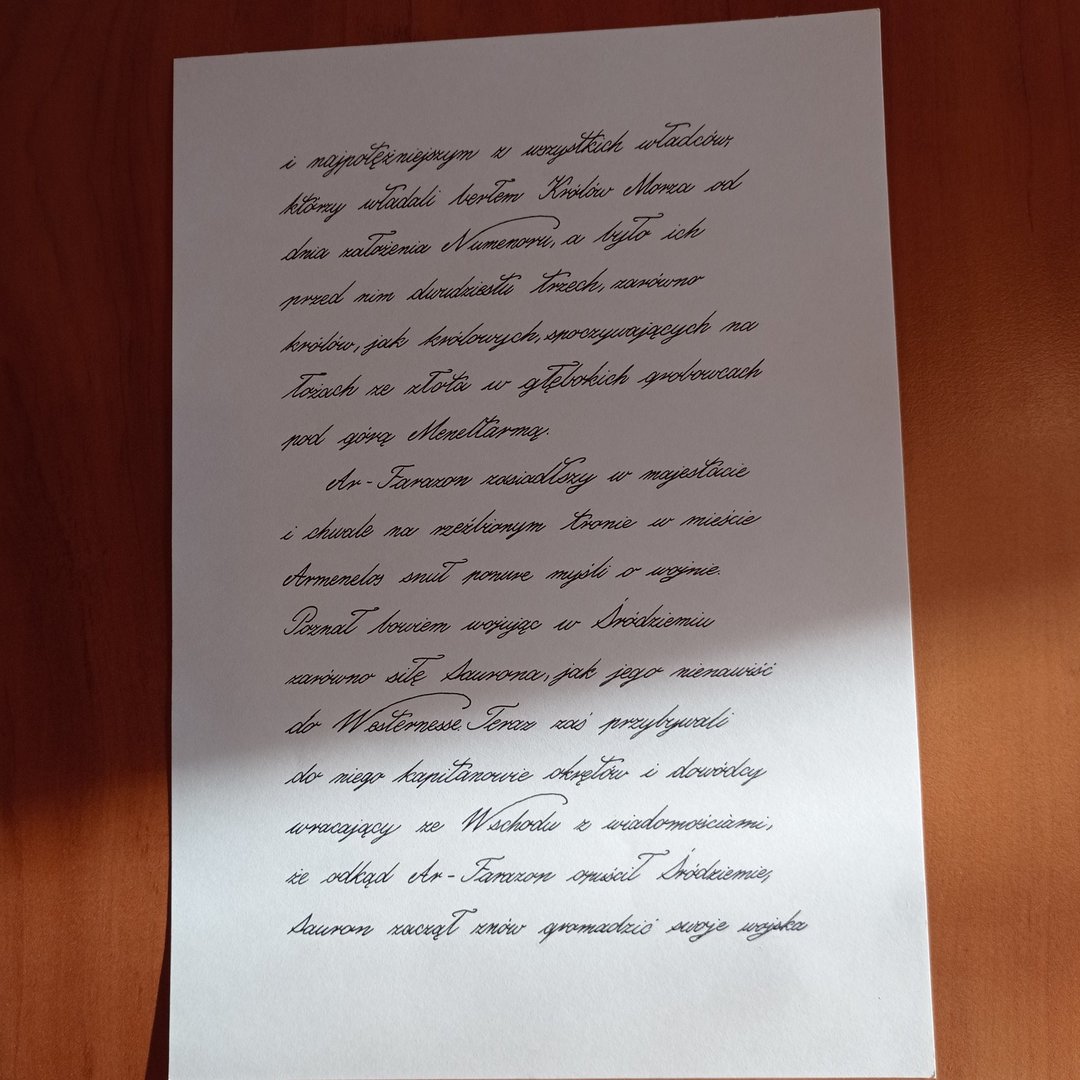 i najpotężniejszym z wszystkich władców,
którzy władali berłem Królów Morza od
dnia założenia Numenoru, a było ich
przed nim dwudziestu trzech, zarówno
królów, jak królowych, spoczywających na
łożach ze złota w głębokich grobowcach
pod górą Meneltarmą.
Ar-Farazon zasiadłszy w majestacie
i chwale na rzeźbionym tronie w mieście
Armenelos snuł ponure myśli o wojnie.
Poznał bowiem wojując w Śródziemiu
zarówno siłę Saurona, jak jego nienawiść
do Westernesse. Teraz zaś przybywali
do niego kapitanowie okrętów i dowódcy
wracający ze Wschodu z wiadomościami,
że odkąd Ar-Farazon opuścił Śródziemie,
Sauron zaczął znów gromadzić swoje wojska